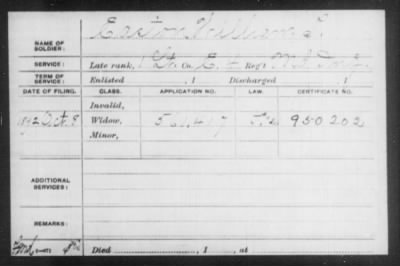 NAME OF SOLDIER: Easton, William S.
SERVICE: Late rank, Lt. Co. E, Reg't Inf.
TERM OF SERVICE: Enlisted , 1 Discharged , 1
DATE OF FILING. CLASS. APPLICATION NO. LAW. CERTIFICATE NO.
Invalid,
1892 Oct. 8 Widow, 950202
Minor,
ADDITIONAL SERVICES:
REMARKS:
Died , 1 , at